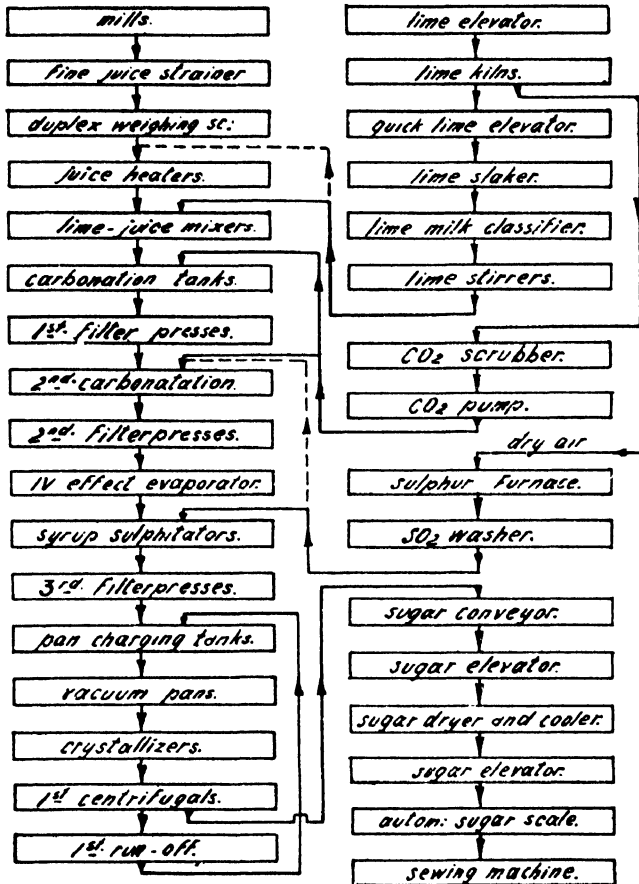 mills.
fine juice strainer
duplex weighing sc:
juice heaters.
lime-juice mixers.
carbonation tanks.
1st. filter presses.
2nd. carbonatation.
2nd. filterpresses.
IV effect evaporator.
syrup sulphitators.
3rd. filterpresses.
pan charging tanks.
vacuum pans.
crystallizers.
1st centrifugals.
1st. run-off.
lime elevator.
lime kilns.
quick lime elevator.
lime slaker.
lime milk classifier.
lime stirrers.
CO2 scrubber.
CO2 pump.
dry air
sulphur furnace.
SO2 washer.
sugar conveyor.
sugar elevator.
sugar dryer and cooler.
sugar elevator.
autom: sugar scale.
sewing machine.